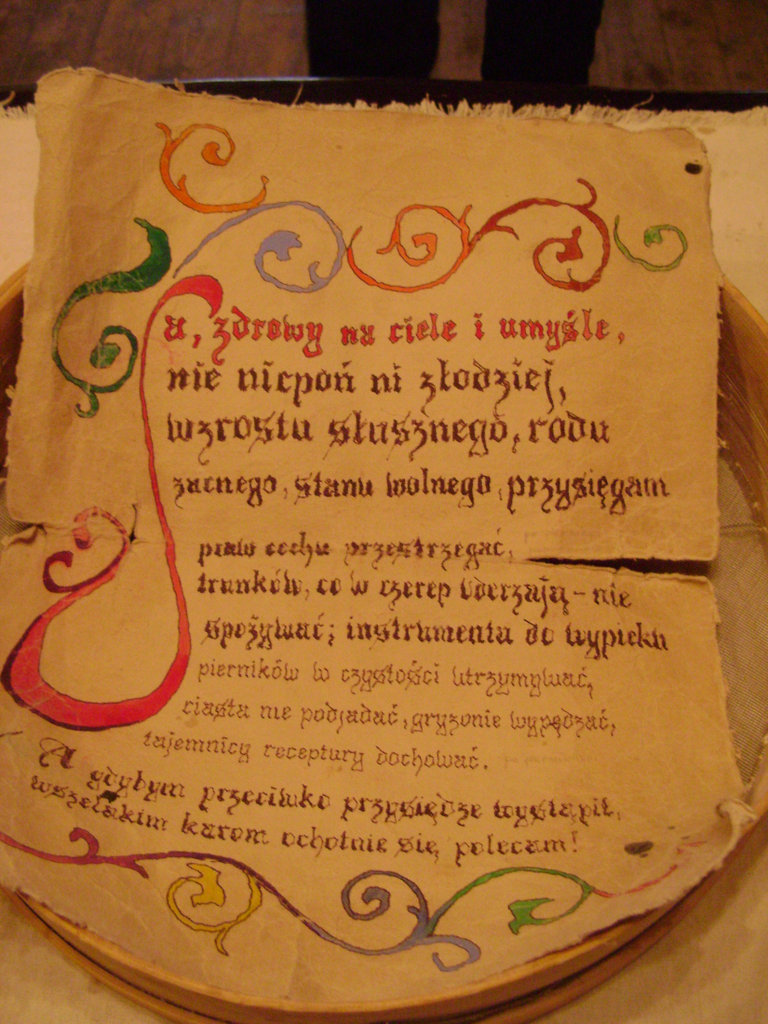 Ja, zdrowy na ciele i umyśle,
nie nicpoń ni złodziej,
wzrostu słusznego, rodu
zacnego, stanu wolnego, przysięgam
praw cechu przestrzegać,
trunków, co w czerep uderzają - nie
spożywać; instrumenta do wypieku
pierników w czystości utrzymywać,
ciasta nie podjadać, gryzonie wypędzać,
tajemnicy receptury dochować.
A gdybym przeciwko przysiędze wystąpił,
wszelakim karom ochotnie się polecam!